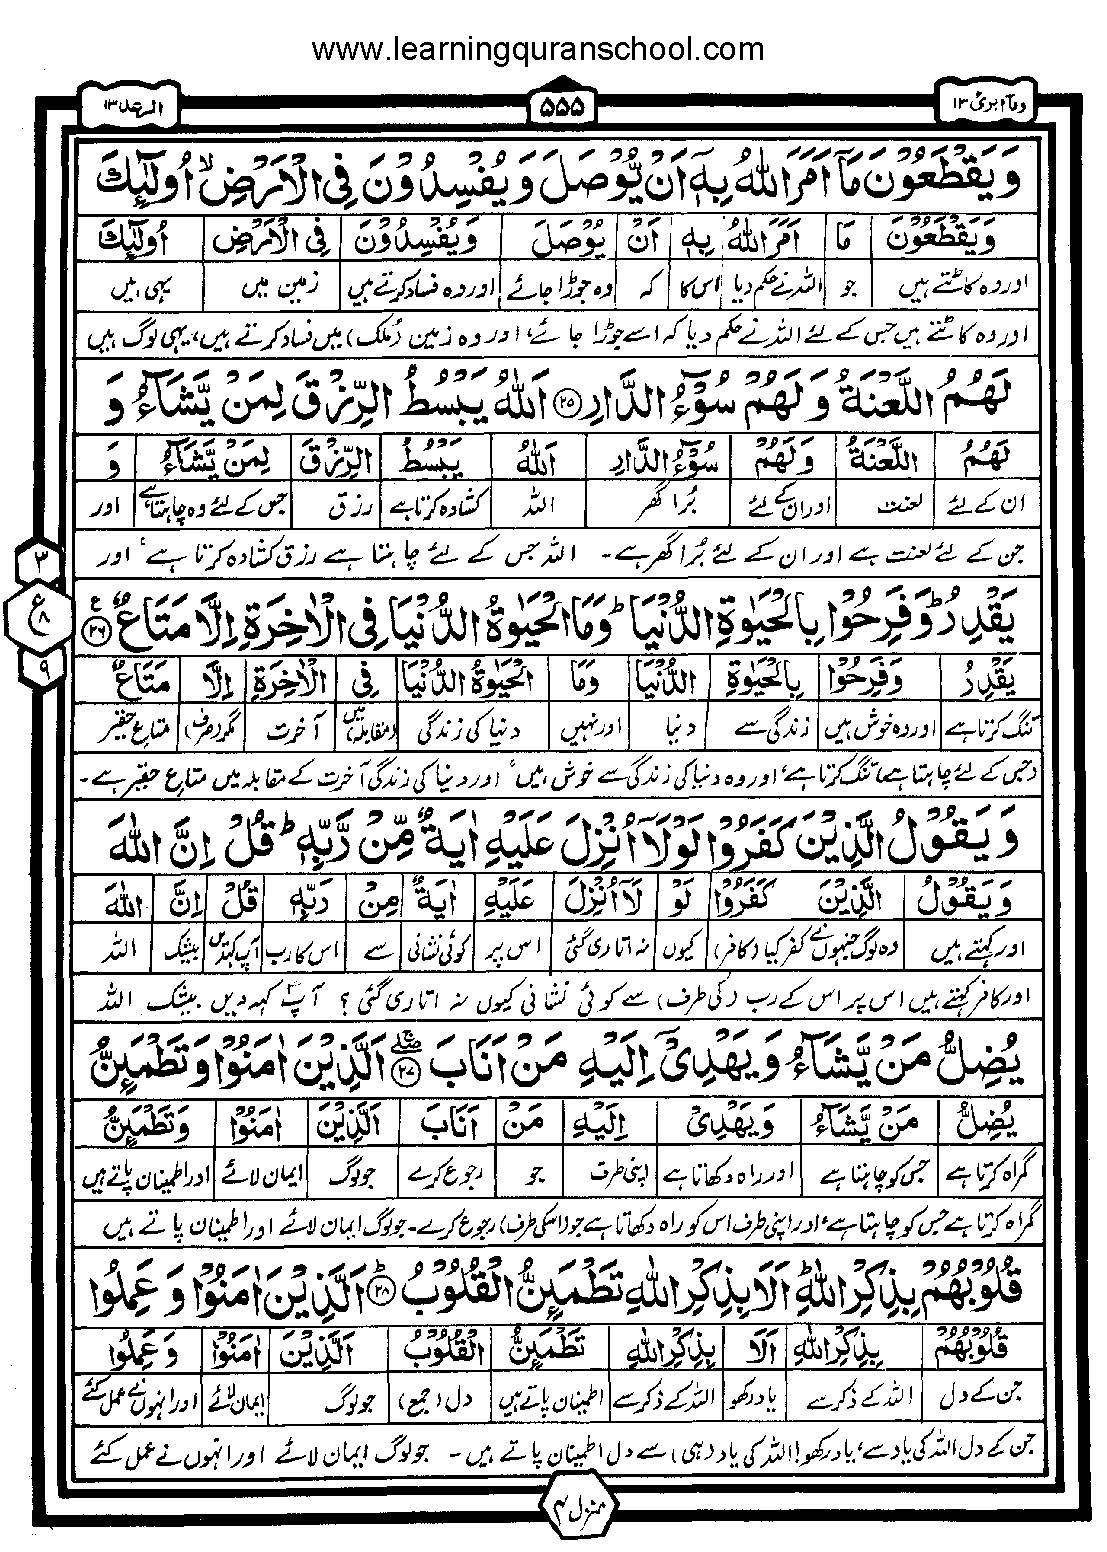 www.learningquranschool.com
وماابرئ ١٣
۵۵۵
الرعد ١٣
وَيَقْطَعُوْنَ مَآ اَمَرَ اللّٰهُ بِهٖٓ اَنْ يُّوْصَلَ وَيُفْسِدُوْنَ فِى الْاَرْضِ ۙ اُولٰٓئِكَ
وَيَقْطَعُوْنَ مَا اَمَرَ اللّٰهُ بِهٖ اَنْ يُوْصَلَ وَيُفْسِدُوْنَ فِى الْاَرْضِ اُولٰٓئِكَ
اور وہ کاٹتے ہیں جو اللہ نے حکم دیا اس کا کہ وہ جوڑا جائے اور وہ فساد کرتے ہیں زمین میں یہی ہیں
اور وہ کاٹتے ہیں جس کے لئے اللہ نے حکم دیا کہ اسے جوڑا جائے، اور وہ زمین (ملک) میں فساد کرتے ہیں، یہی لوگ ہیں
لَهُمُ اللَّعْنَةُ وَلَهُمْ سُوْٓءُ الدَّارِ ۲۵ اَللّٰهُ يَبْسُطُ الرِّزْقَ لِمَنْ يَّشَآءُ وَ
لَهُمُ اللَّعْنَةُ وَلَهُمْ سُوْٓءُ الدَّارِ اَللّٰهُ يَبْسُطُ الرِّزْقَ لِمَنْ يَّشَآءُ وَ
ان کے لئے لعنت اور ان کے لئے بُرا گھر اللہ کشادہ کرتا ہے رزق جس کے لئے وہ چاہتا ہے اور
جن کے لئے لعنت ہے اور ان کے لئے بُرا گھر ہے۔ اللہ جس کے لئے چاہتا ہے رزق کشادہ کرتا ہے، اور
٣
ع
٨
٩
يَقْدِرُ ؕ وَفَرِحُوْا بِالْحَيٰوةِ الدُّنْيَا ؕ وَمَا الْحَيٰوةُ الدُّنْيَا فِى الْاٰخِرَةِ اِلَّا مَتَاعٌ ۲۶
يَقْدِرُ وَفَرِحُوْا بِالْحَيٰوةِ الدُّنْيَا وَمَا الْحَيٰوةُ الدُّنْيَا فِى الْاٰخِرَةِ اِلَّا مَتَاعٌ
تنگ کرتا ہے اور وہ خوش ہیں زندگی سے دنیا اور نہیں دنیا کی زندگی (مقابلہ) میں آخرت مگر (صرف) متاع حقیر
(جس کے لئے چاہتا ہے) تنگ کرتا ہے، اور وہ دنیا کی زندگی سے خوش ہیں، اور دنیا کی زندگی آخرت کے مقابلہ میں متاع حقیر ہے۔
وَيَقُوْلُ الَّذِيْنَ كَفَرُوْا لَوْلَآ اُنْزِلَ عَلَيْهِ اٰيَةٌ مِّنْ رَّبِّهٖ ؕ قُلْ اِنَّ اللّٰهَ
وَيَقُوْلُ الَّذِيْنَ كَفَرُوْا لَوْ لَآ اُنْزِلَ عَلَيْهِ اٰيَةٌ مِنْ رَبِّهٖ قُلْ اِنَّ اللّٰهَ
اور کہتے ہیں وہ لوگ جنہوں نے کفر کیا (کافر) کیوں نہ اتاری گئی اس پر کوئی نشانی سے اس کا رب آپ کہدیں بیشک اللہ
اور کافر کہتے ہیں اس پر اس کے رب (کی طرف) سے کوئی نشانی کیوں نہ اتاری گئی؟ آپ کہہ دیں بیشک اللہ
يُضِلُّ مَنْ يَّشَآءُ وَيَهْدِىْٓ اِلَيْهِ مَنْ اَنَابَ ۲۷ اَلَّذِيْنَ اٰمَنُوْا وَتَطْمَئِنُّ
يُضِلُّ مَنْ يَّشَآءُ وَيَهْدِىْ اِلَيْهِ مَنْ اَنَابَ اَلَّذِيْنَ اٰمَنُوْا وَتَطْمَئِنُّ
گمراہ کرتا ہے جس کو چاہتا ہے اور راہ دکھاتا ہے اپنی طرف جو رجوع کرے جو لوگ ایمان لائے اور اطمینان پاتے ہیں
گمراہ کرتا ہے جس کو چاہتا ہے، اور اپنی طرف اس کو راہ دکھاتا ہے جو (اسکی طرف) رجوع کرے۔ جو لوگ ایمان لائے اور اطمینان پاتے ہیں
قُلُوْبُهُمْ بِذِكْرِ اللّٰهِ ؕ اَلَا بِذِكْرِ اللّٰهِ تَطْمَئِنُّ الْقُلُوْبُ ۲۸ اَلَّذِيْنَ اٰمَنُوْا وَعَمِلُوا
قُلُوْبُهُمْ بِذِكْرِ اللّٰهِ اَلَا بِذِكْرِ اللّٰهِ تَطْمَئِنُّ الْقُلُوْبُ اَلَّذِيْنَ اٰمَنُوْا وَعَمِلُوا
جن کے دل اللہ کے ذکر سے یاد رکھو اللہ کے ذکر سے اطمینان پاتے ہیں دل (جمع) جو لوگ ایمان لائے اور انہوں نے عمل کئے
جن کے دل اللہ کی یاد سے، یاد رکھو! اللہ کی یاد (ہی) سے دل اطمینان پاتے ہیں۔ جو لوگ ایمان لائے اور انہوں نے عمل کئے
منزل ٣